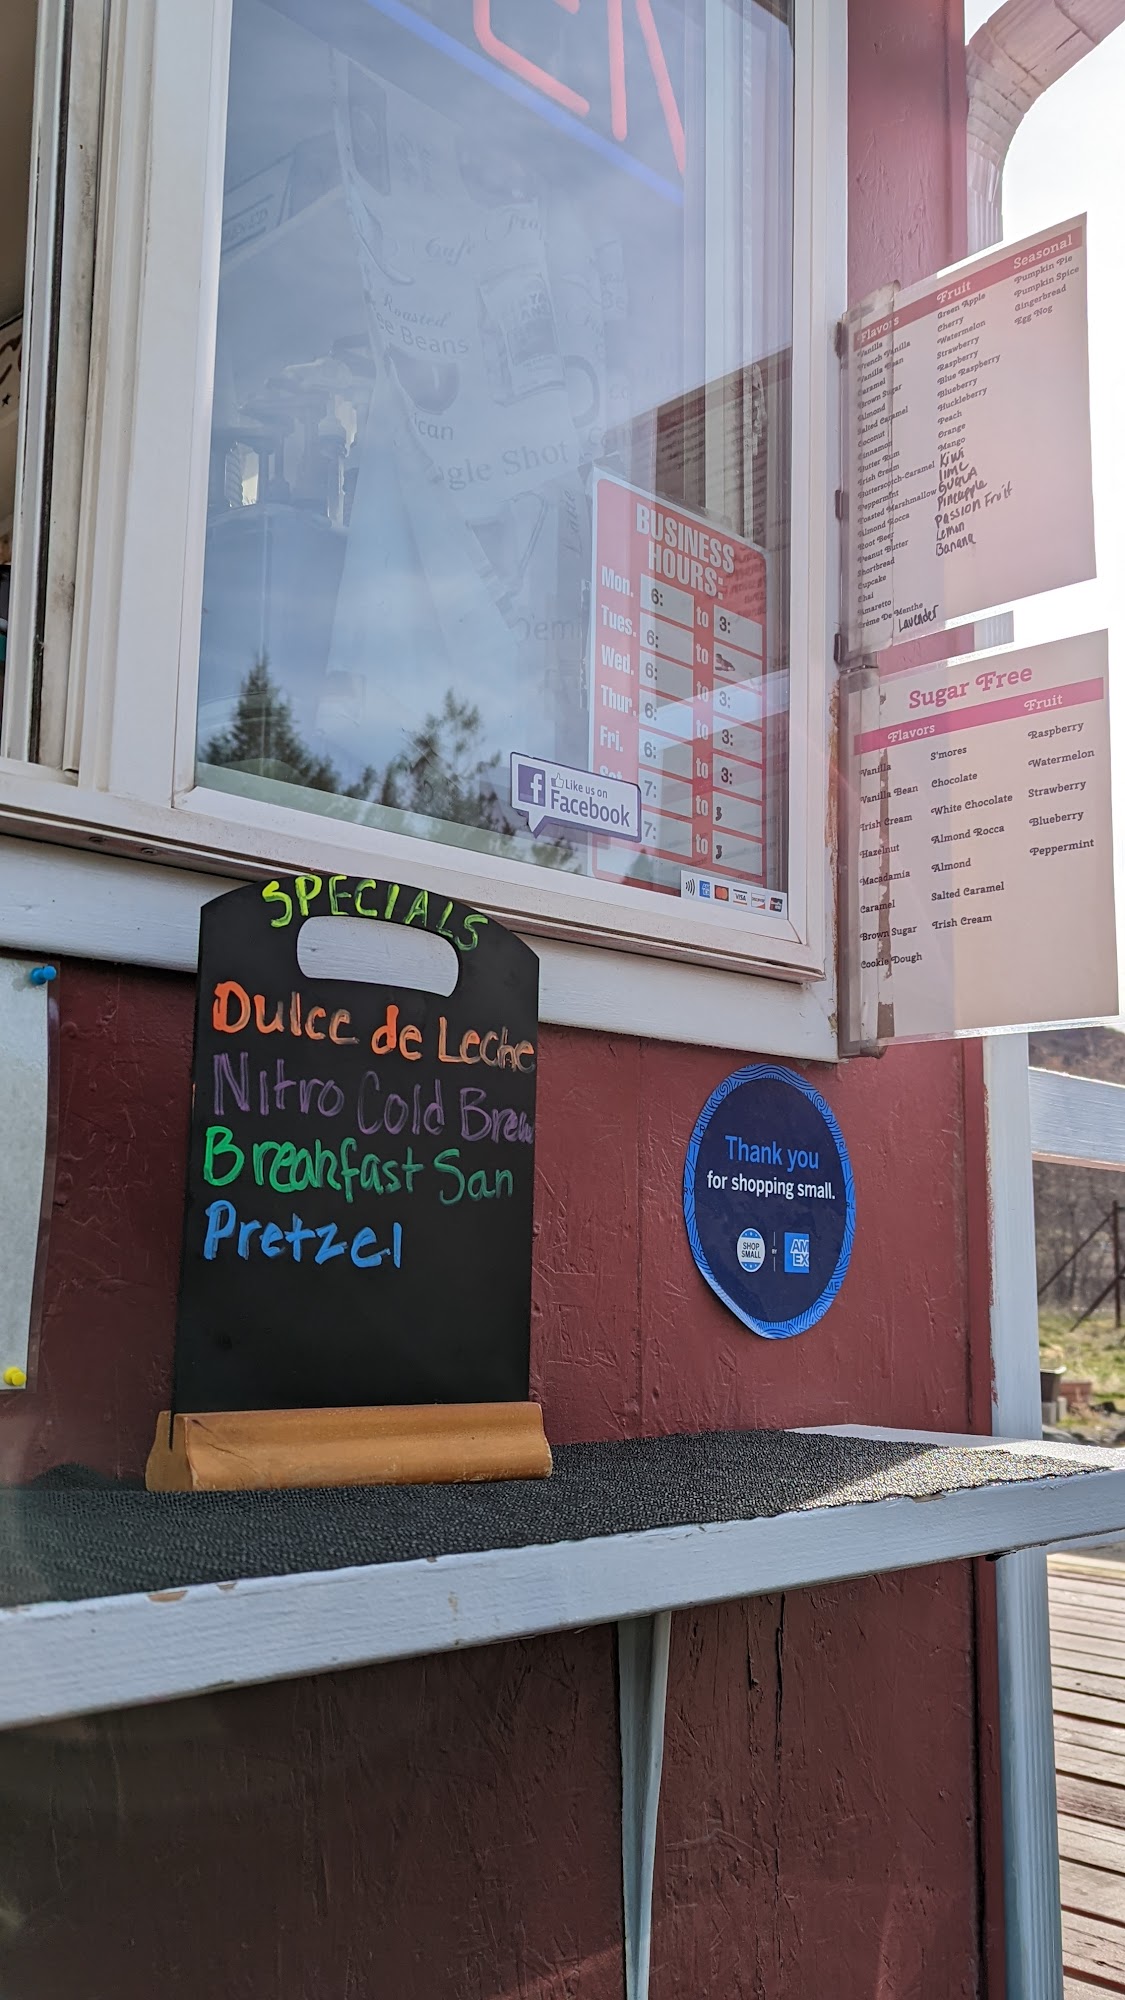 Café
Roasted
Beans
Shot
BUSINESS
HOURS:
Mon. 6: to 3:
Tues. 6: to
Wed. 6: to 3:
Thur. 6: to 3:
Fri. 6: to 3:
7: to 3
7: to 3
Like us on
Facebook
VISA
SPECIALS
Dulce de Leche
Nitro Cold Brew
Breakfast San
Pretzel
Flavors
Vanilla
French Vanilla
Vanilla Bean
Caramel
Brown Sugar
Almond
Salted Caramel
Coconut
Cinnamon
Butter Rum
Irish Cream
Butterscotch-Caramel
Peppermint
Toasted Marshmallow
Almond Rocca
Root Beer
Peanut Butter
Shortbread
Cupcake
Chai
Amaretto
Crème De Menthe
Lavender
Fruit
Green Apple
Cherry
Watermelon
Strawberry
Raspberry
Blue Raspberry
Blueberry
Huckleberry
Peach
Orange
Mango
Kiwi
Lime
Guava
Pineapple
Passion Fruit
Lemon
Banana
Seasonal
Pumpkin Pie
Pumpkin Spice
Gingerbread
Egg Nog
Sugar Free
Flavors
Vanilla
Vanilla Bean
Irish Cream
Hazelnut
Macadamia
Caramel
Brown Sugar
Cookie Dough
S'mores
Chocolate
White Chocolate
Almond Rocca
Almond
Salted Caramel
Irish Cream
Fruit
Raspberry
Watermelon
Strawberry
Blueberry
Peppermint
Thank you
for shopping small.
SHOP
SMALL
BY
AM
EX